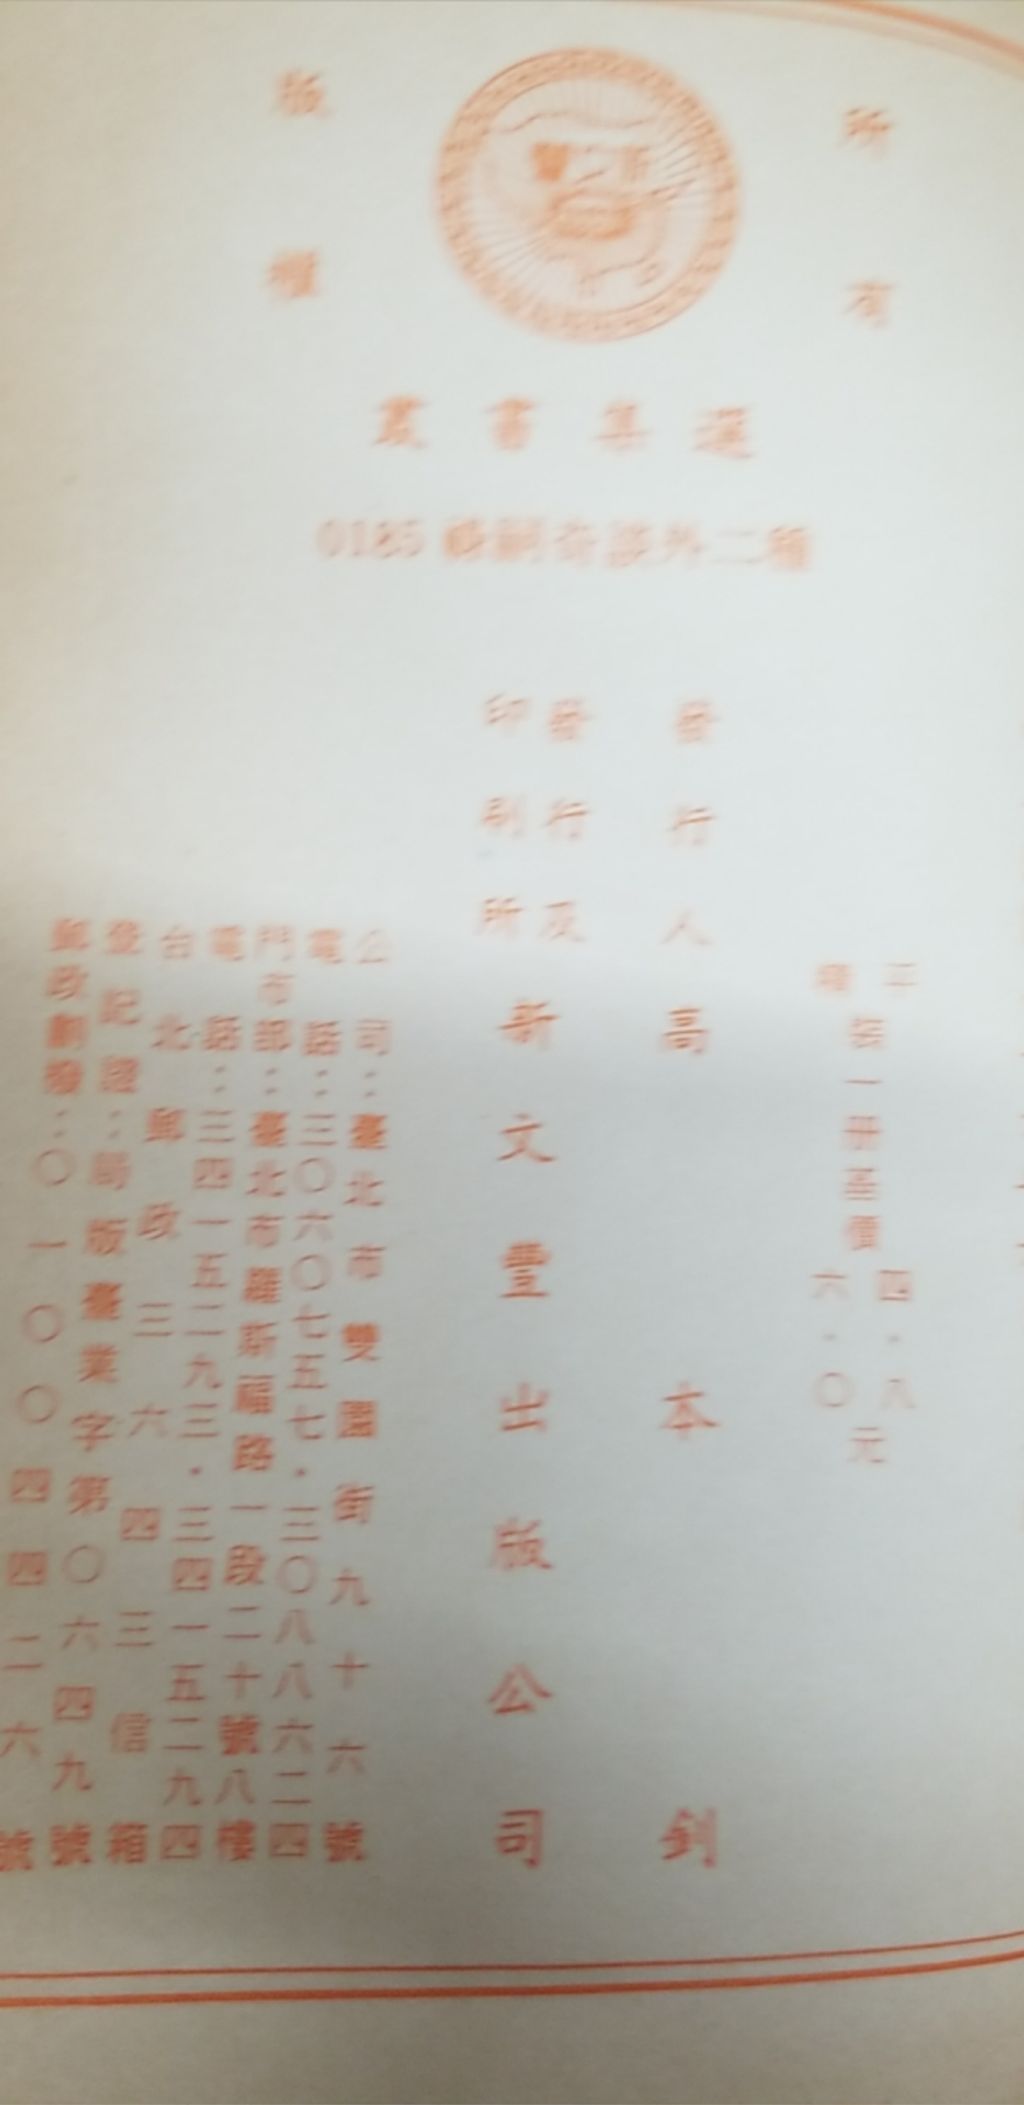 版權
所有
叢書集選
0185 ���嗣奇談外二種
平 四.八
裝一冊基價 元
精 六.〇
發行人 高本釗
發行及
印刷所
新文豐出版公司
公司：臺北市雙園街九十六號
電話：三〇六〇七五七．三〇八八六二四
門市部：臺北市羅斯福路一段二十號八樓
電話：三四一五二九三．三四一五二九四
台北郵政三六四三信箱
登記證：局版臺業字第〇六四九號
郵政劃撥：〇一〇〇四四二六號